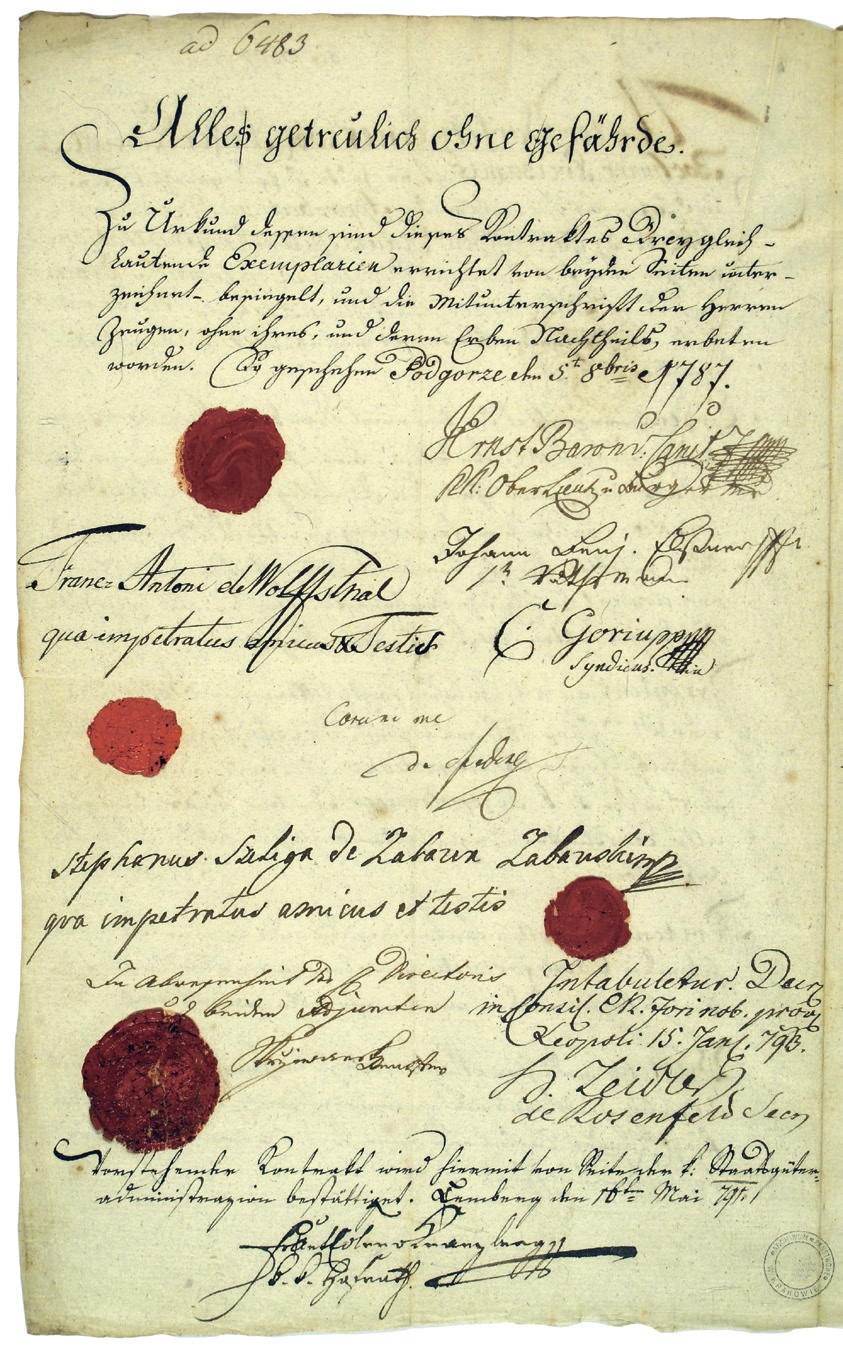 ad 6483
Alles getreulich ohne gefährde.
Zu Urkund dessen sind dieses Kontraktes Dreygleich-
lautende Exemplarien errichtet von beyden Seiten unter-
zeichnet, besiegelt, und die Mitunterschrift der Herren
Zeugen, ohne ihres, und deren Erben Nachtheils, erbeten
worden. So geschehen Podgorze den 5t 8bris 1787.
Ernst Baron v:
KK: OberLieut: u
Johann Benj.
Franc= Antoni de Wolffsthal
qua impetratus amicus & Testis
C. Goriupp
Syndicus.
Coram me
de
Stephanus Szeliga de Zabawa Zabawski
qva impetratus amicus et testis
In Abwesenheit des Directoris
beiden Adjuncten
Intabuletur. Decr
in Consil. CR. Fori nob. prov
Leopoli 15. Jan. 793.
de Rosenfeld Secr
Vorstehender Kontrakt wird hiermit von Seite der k: Staatsgüter-
administrazion bestättiget. Lemberg den 16ten Mai 791
k. k. Hofrath.
ARCHIWUM PAŃSTWOWE W KRAKOWIE